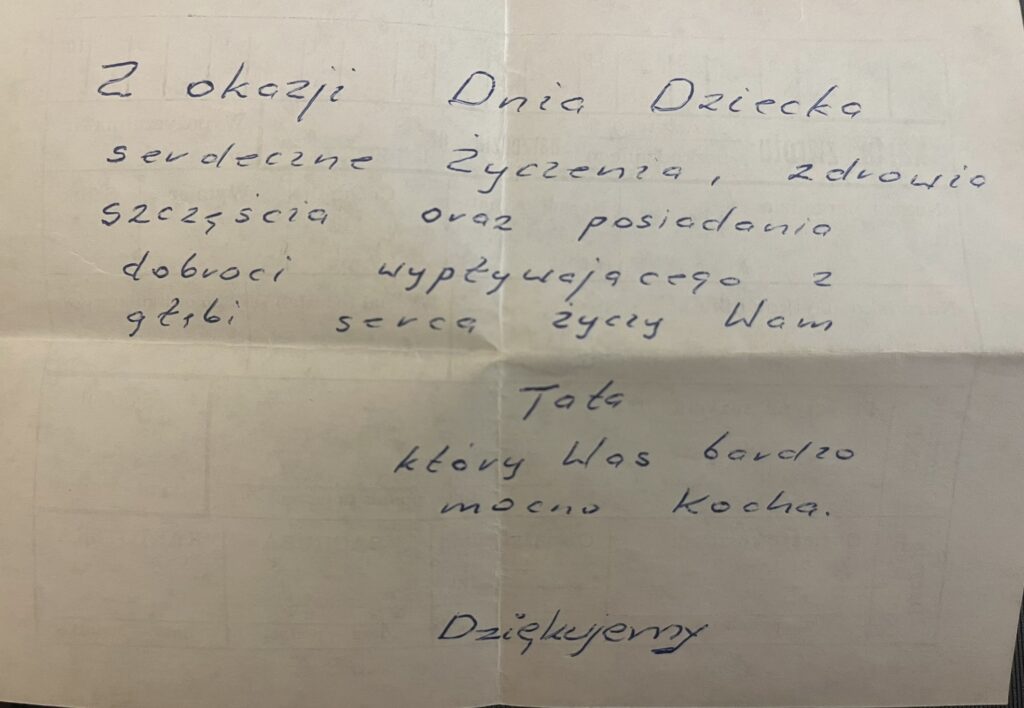 Z okazji Dnia Dziecka
serdeczne Życzenia, zdrowia
szczęścia oraz posiadania
dobroci wypływającego z
głębi serca życzy Wam
Tata
który Was bardzo
mocno Kocha.
Dziękujemy